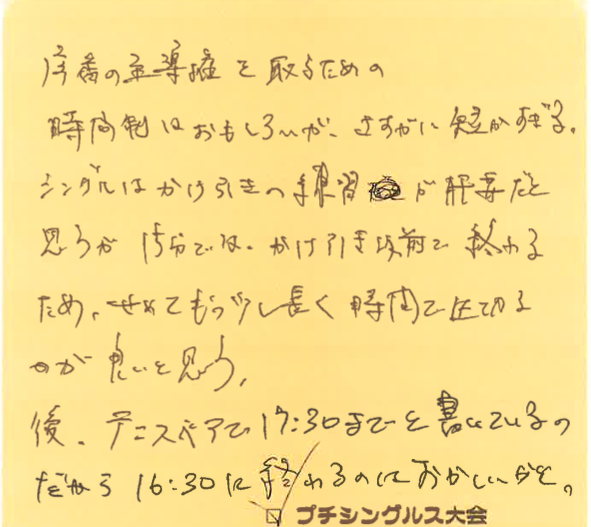 序盤の主導権を取るための
時間制はおもしろいが、さすがに短かすぎる。
シングルはかけ引きの練習が肝要だと
思うが15分では、かけ引き以前で終わる
ため、せめてもう少し長く時間を
のが良いと思う。
後、テニスベアで17:30までと書いているの
だから16:30に終わるのはおかしいかと。
プチシングルス大会